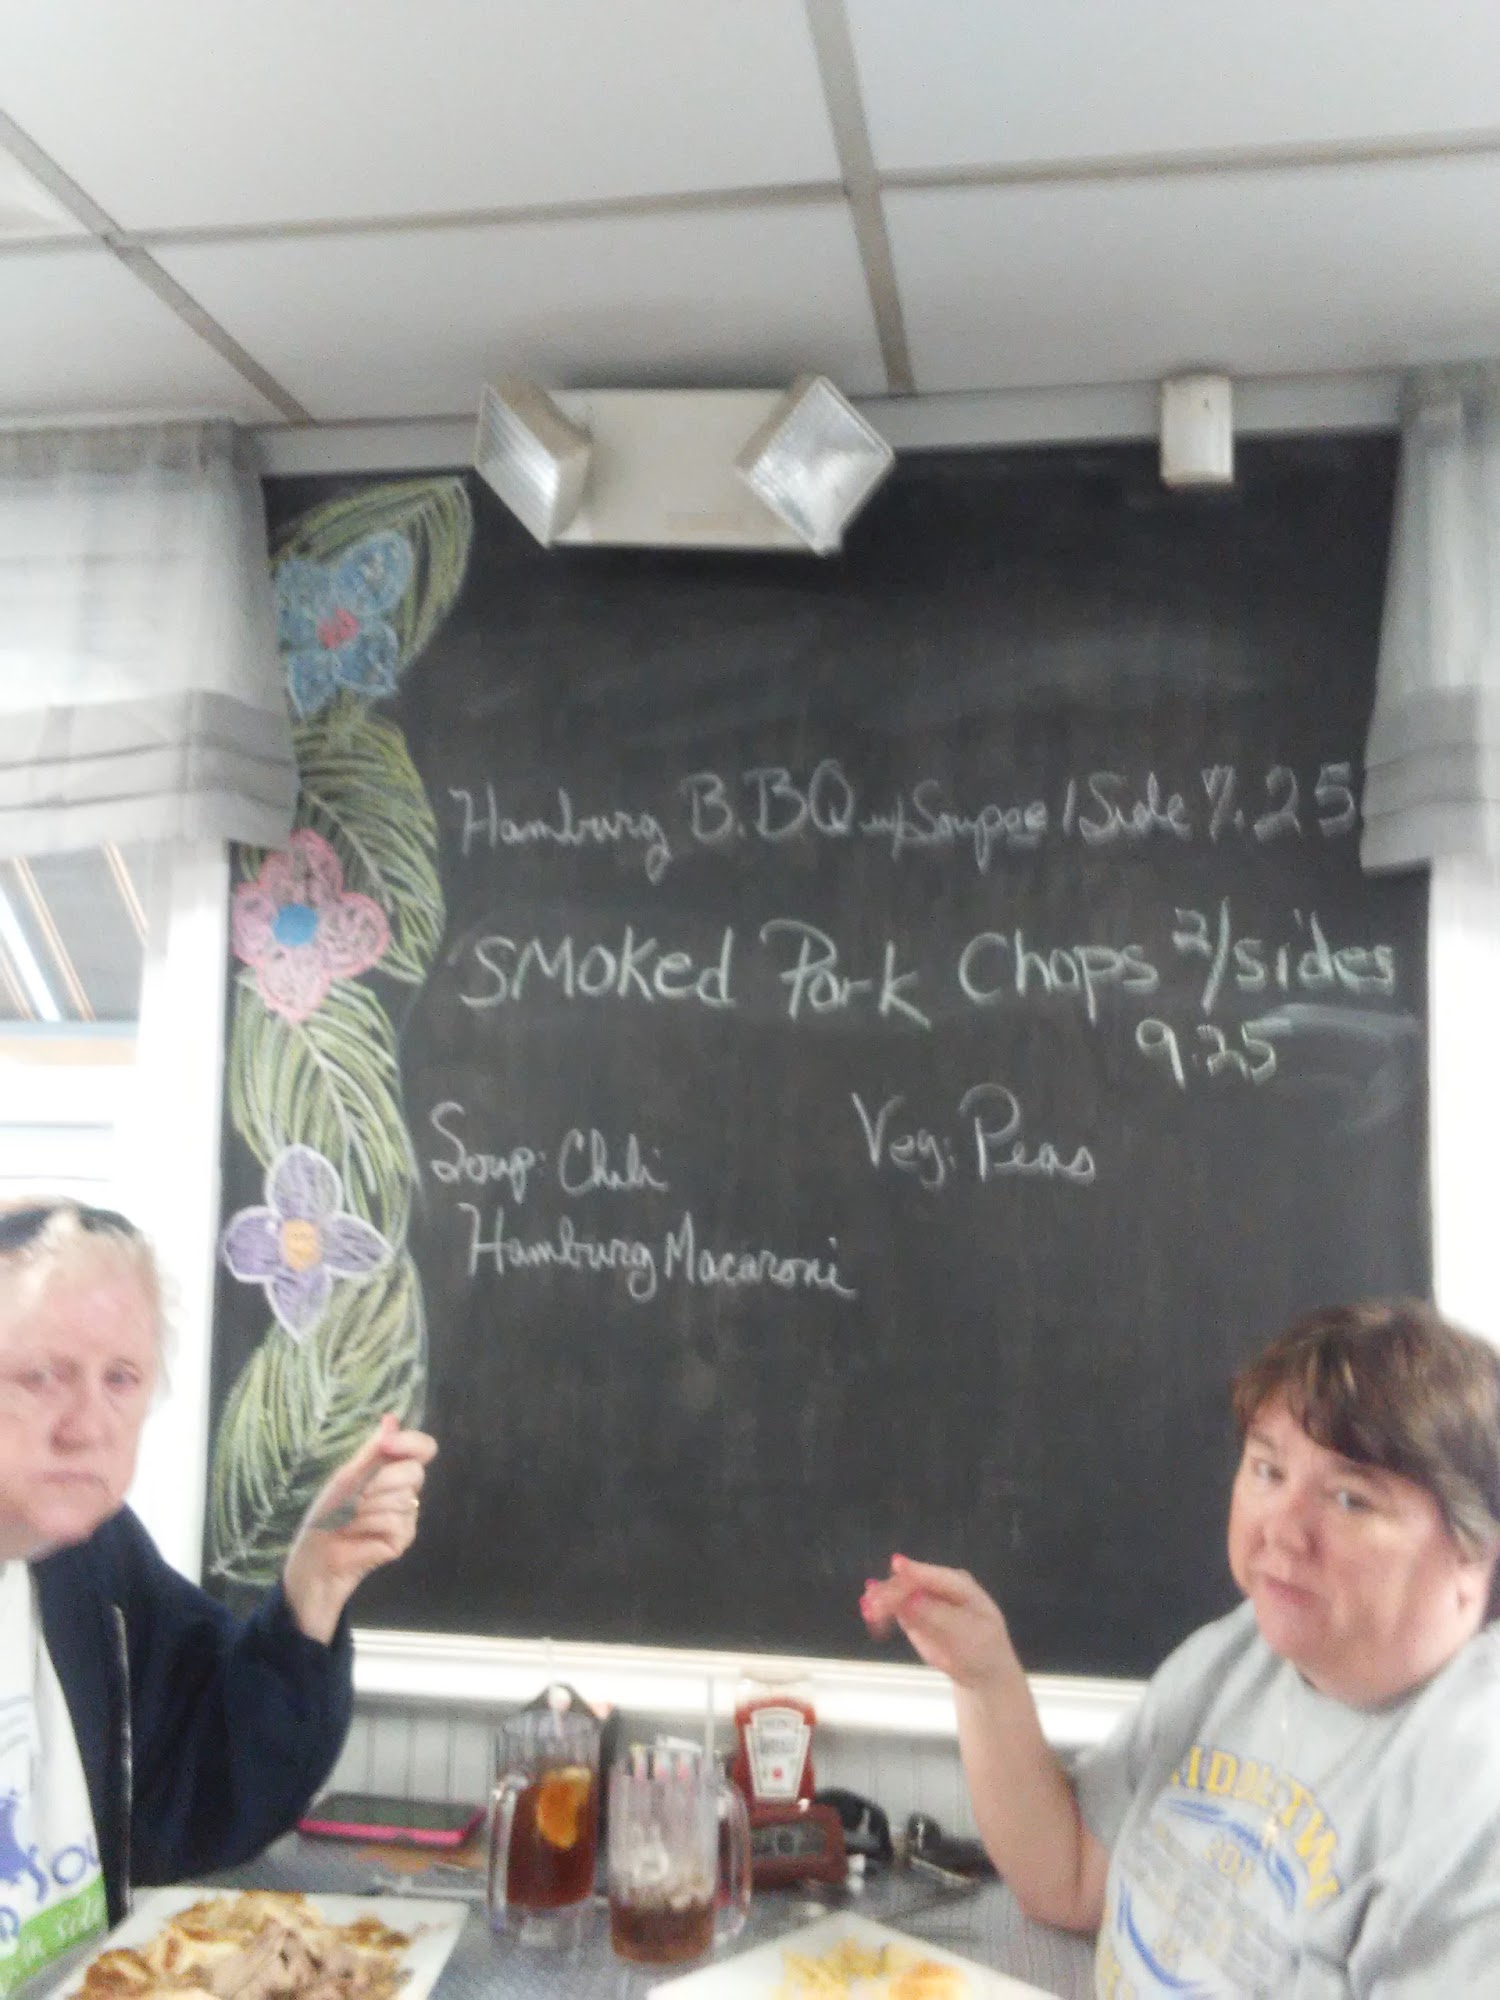 Hamburg B.BQ w/Soupee/Side 7.25
SMOKED Pork Chops 2/sides
9.25
Soup: Chili
Veg: Peas
Hamburg Macaroni
HEINZ
SOU